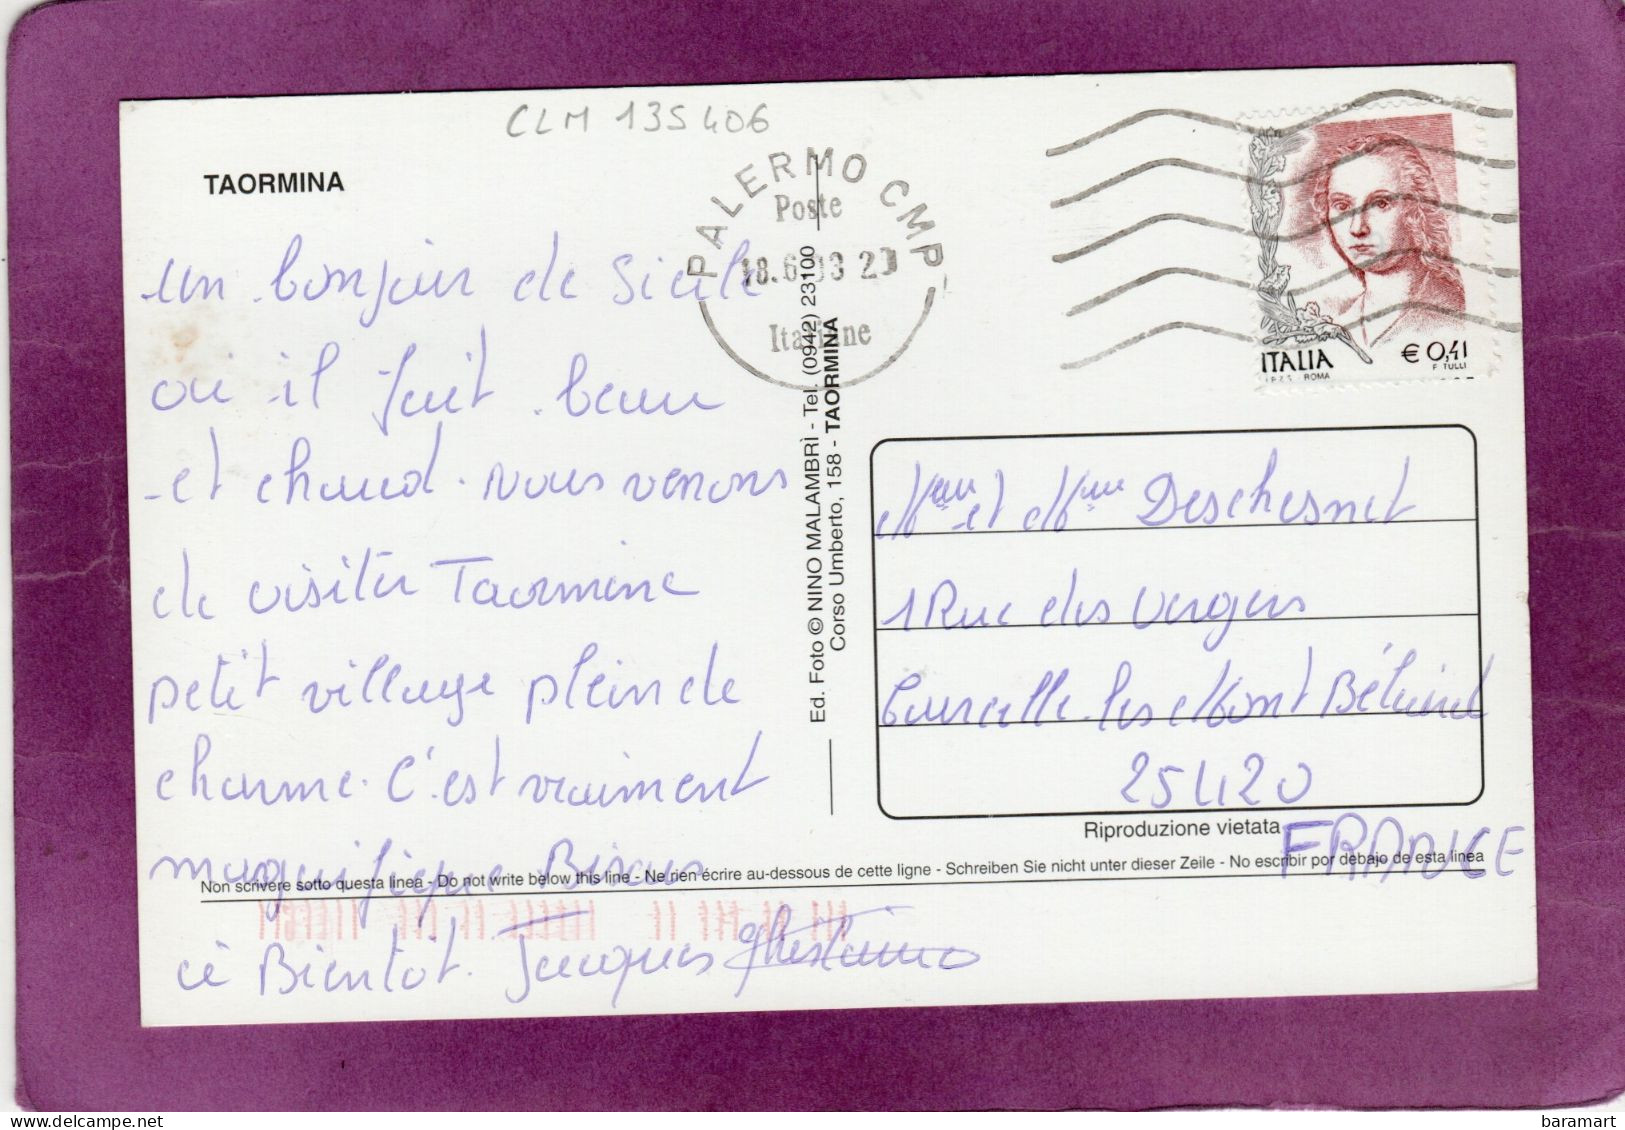 CLM 135406
TAORMINA
un bonjour de Sicile
où il fait beau
et chaud. nous venons
de visiter Taormine
petit village plein de
charme. C'est vraiment
magnifique Bisous
à Bientôt. Jacques
PALERMO CMP
Poste
18.6. 03 20
Italiane
ITALIA
€ 0,41
I.P.Z.S. - ROMA
F. TULLI
Ed. Foto © NINO MALAMBRÌ - Tel. (0942) 23100
Corso Umberto, 158 - TAORMINA
et Mme Deschesnet
1 Rue des Vergers
Courcelle-les Mont Béliard
25420
FRANCE
Riproduzione vietata
Non scrivere sotto questa linea - Do not write below this line - Ne rien écrire au-dessous de cette ligne - Schreiben Sie nicht unter dieser Zeile - No escribir por debajo de esta linea
baramart